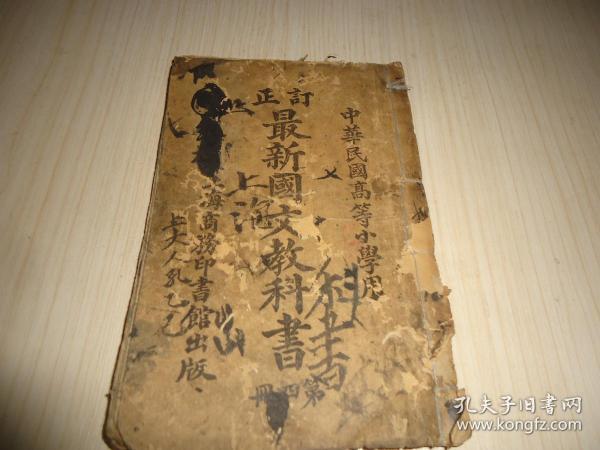 中華民國高等小學用
訂正
最新國文教科書
第四冊
上海
海商務印書館出版
上大人孔乙己
科書
孔夫子旧書网
www.kongfz.com